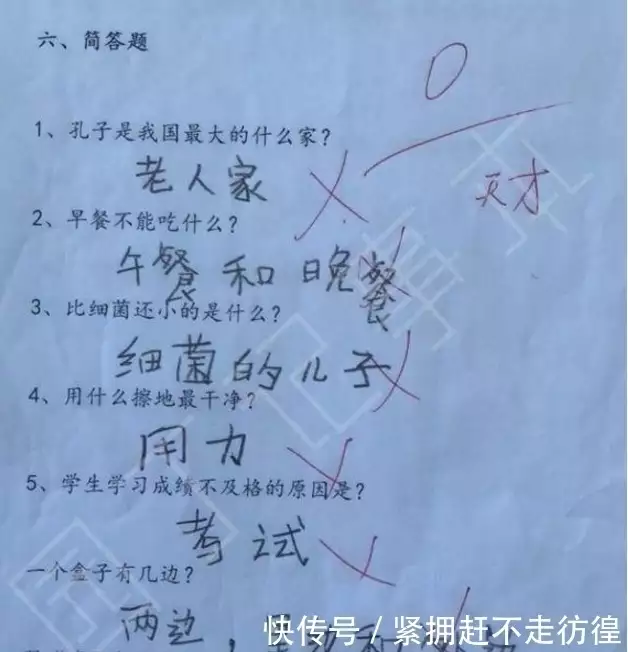 六、简答题
0
1、孔子是我国最大的什么家?
老人家
天才
2、早餐不能吃什么?
午餐和晚餐
3、比细菌还小的是什么?
细菌的儿子
4、用什么擦地最干净?
用力
5、学生学习成绩不及格的原因是?
考试
一个盒子有几边?
两边,
快传号/紧拥赶不走彷徨